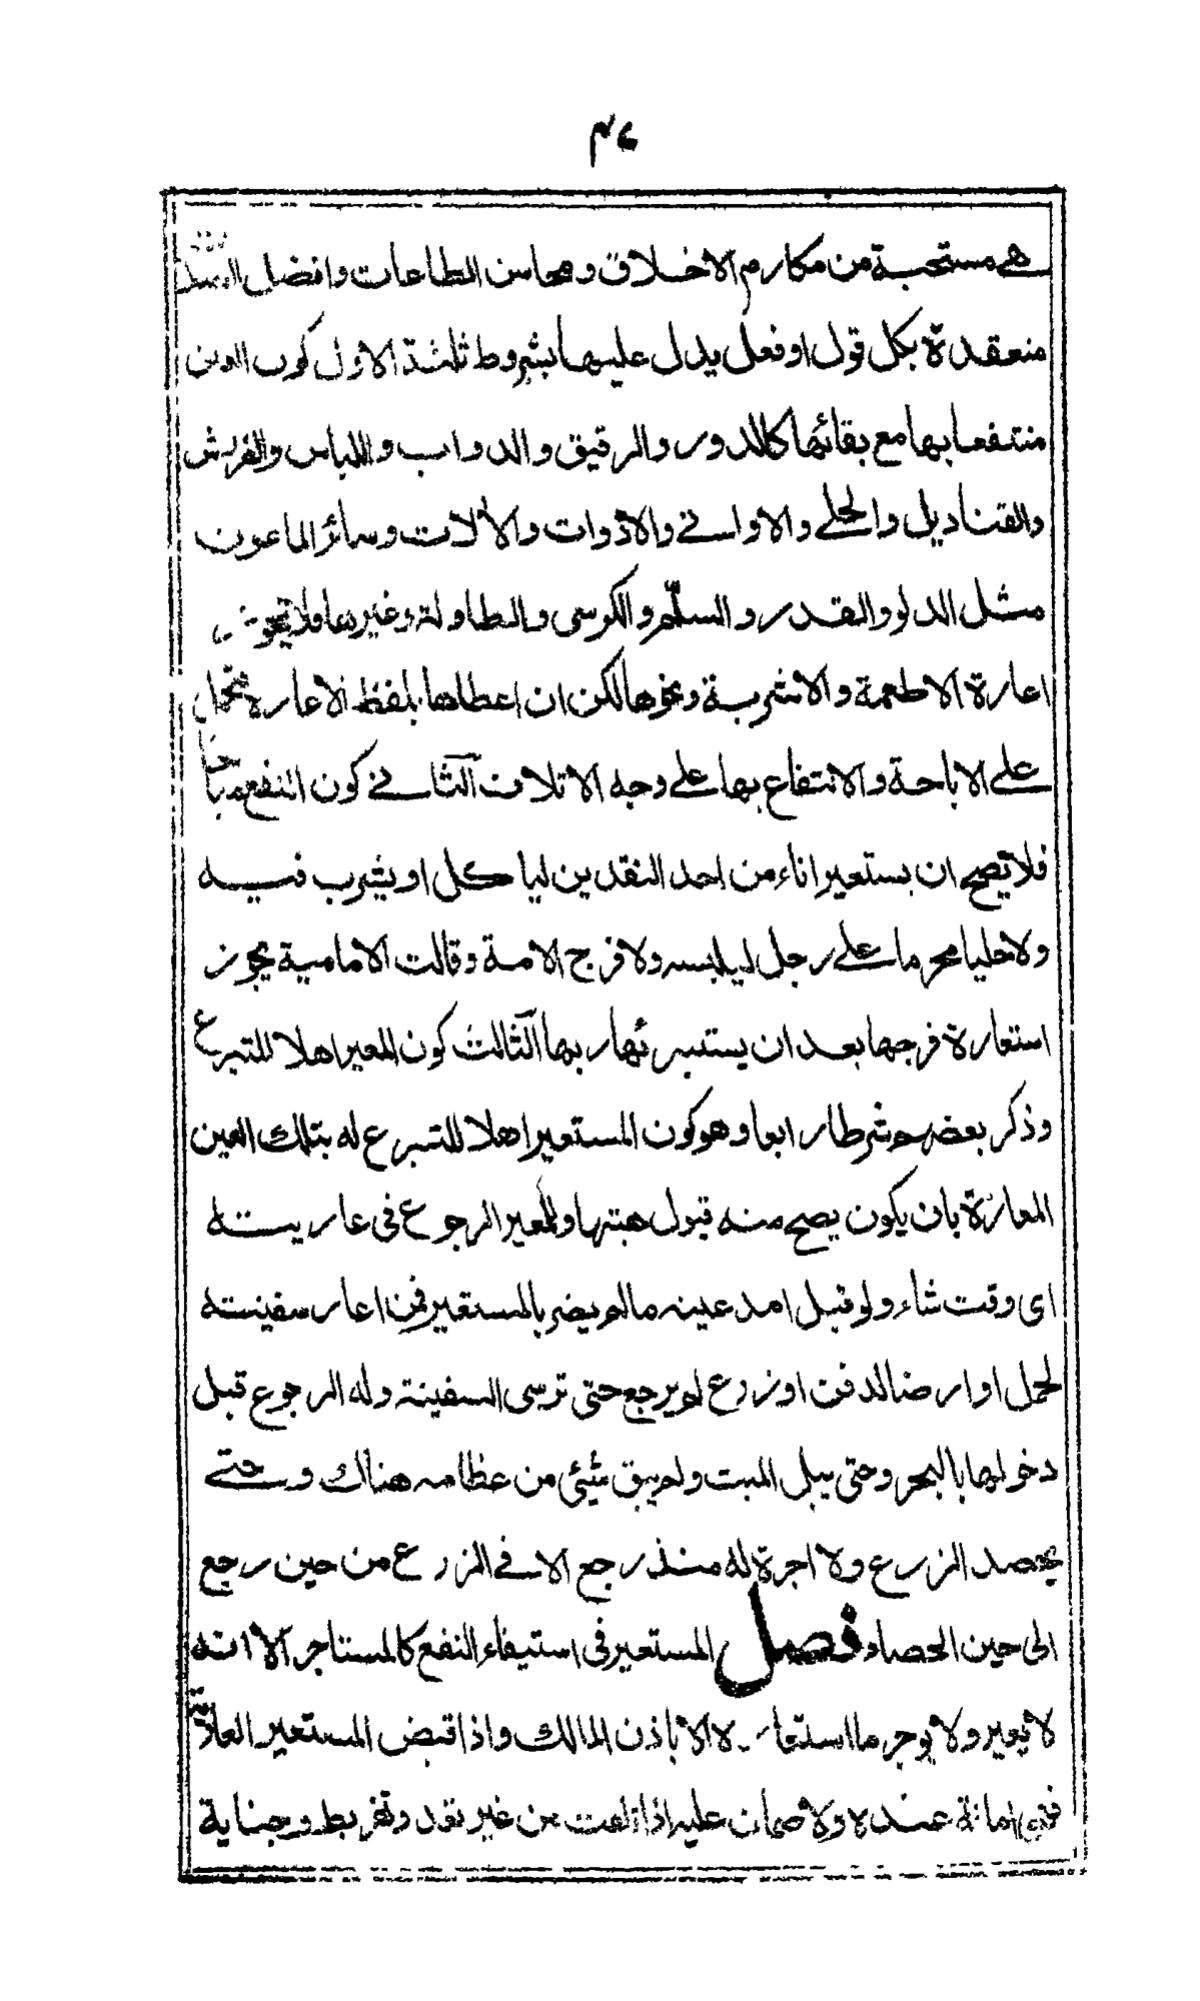 هي مستحبة من مكارم الاخلاق ومحاسن الطاعات وافضل
منعقدة بكل قول او فعل يدل عليها بشروط ثلثة الاول كون العين
منتفعا بها مع بقائها كالدور والرقيق والدواب واللباس والفرش
والقناديل والحلي والاواني والادوات والآلات وسائر الماعون
مثل الدلو والقدر والسلّم والكرسى والطاولة وغيرها فلا تجوز
اعارة الاطعمة والاشربة ونحوها لكن ان اعطاها بلفظ الاعارة تحمل
على الاباحة والانتفاع بها على وجه الاتلاف الثاني كون النفع مباحا
فلا تصح ان يستعير اناء من احد النقدين لياكل او يشرب فيه
ولا حليا محرما على رجل ليلبسه ولا فرج الامة وقالت الامامية يجوز
استعارة فرجها بعد ان يستبرئها ربها الثالث كون المعير اهلا للتبرع
وذكر بعضهم شرطا رابعا وهو كون المستعير اهلا للتبرع له بتلك العين
المعارة بان يكون يصح منه قبول هبتها وللمعير الرجوع فى عاريته
اى وقت شاء ولو قبل امد عينه مالم يضر بالمستعير فمن اعار سفينته
لحمل او ارضا لدفن او زرع لم يرجع حتى ترسى السفينة وله الرجوع قبل
دخولها بالبحر وحتى يبلى الميت ولم يبق شيئ من عظامه هناك وحتى
يحصد الزرع ولا اجرة له منذ رجع الا في الزرع من حين رجع
الى حين الحصاد فصل المستعير فى استيفاء النفع كالمستاجر الا انه
لا يعير ولا يوجر ما استعاره الا باذن المالك واذا قبض المستعير العارية
فهى امانة عنده ولا ضمان عليه اذا تلفت من غير تعد وتفريط وجناية